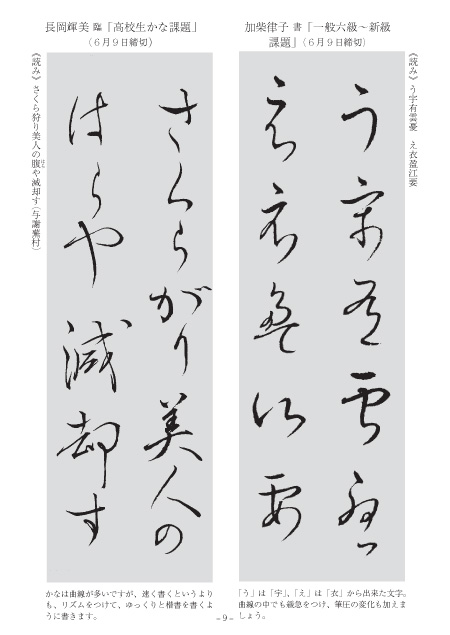 加柴律子 書「一般六級～新級
課題」（６月９日締切）
《読み》う宇有雲憂　え衣盈江要
う宇有雲憂
え衣盈江要
「う」は「宇」、「え」は「衣」から出来た文字。
曲線の中でも緩急をつけ、筆圧の変化も加えま
しょう。
長岡輝美 臨「高校生かな課題」
（６月９日締切）
《読み》さくら狩り美人の腹や減却す（与謝蕪村）
さくらがり美人の
はらや減却す
かなは曲線が多いですが、速く書くというより
も、リズムをつけて、ゆっくりと楷書を書くよ
うに書きます。
－9－